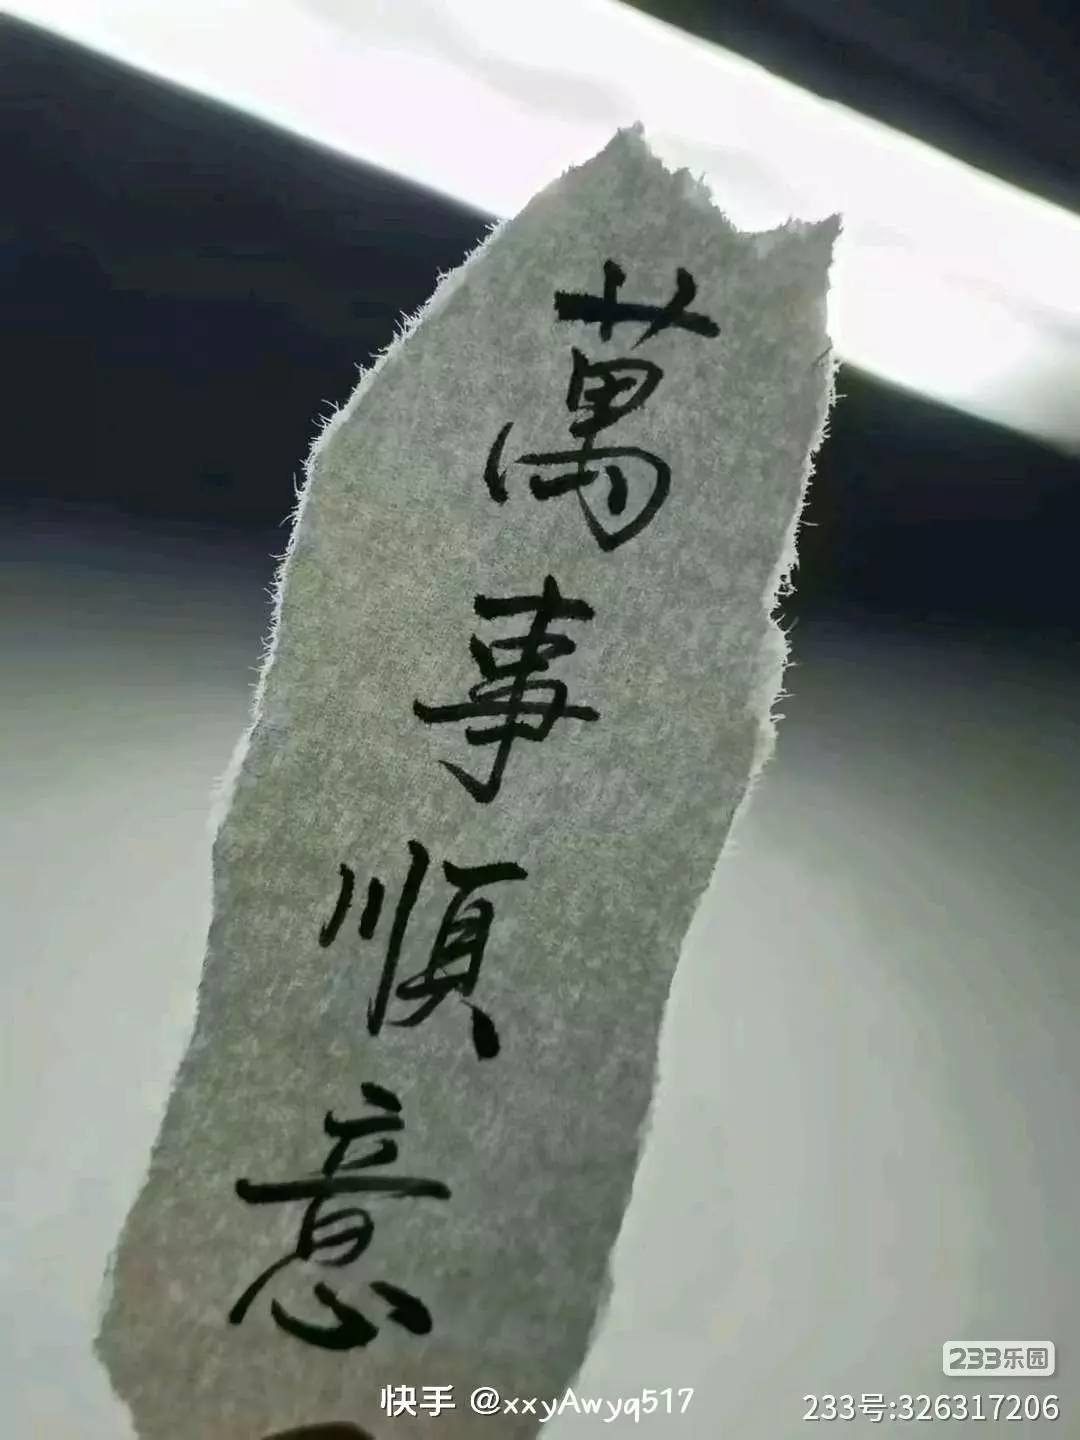 萬事順意
233乐园
快手 @xxyAwyq517
233号:326317206